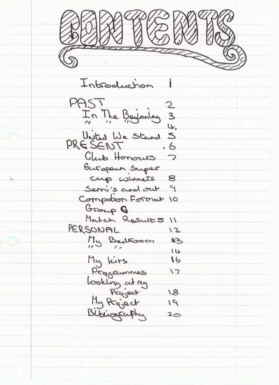 CONTENTS
Introduction 1
PAST 2
In The Beginning 3
" " " 4
United We Stand 5
PRESENT . 6
Club Honours 7
European Super
cup winners 8
Semi's and out 9
Competition Format 10
Group
Match Results 11
PERSONAL 12
My Bedroom 13
" " 14
My kits 16
Programmes 17
Looking at my
Project 18
My Project 19
Bibliography 20